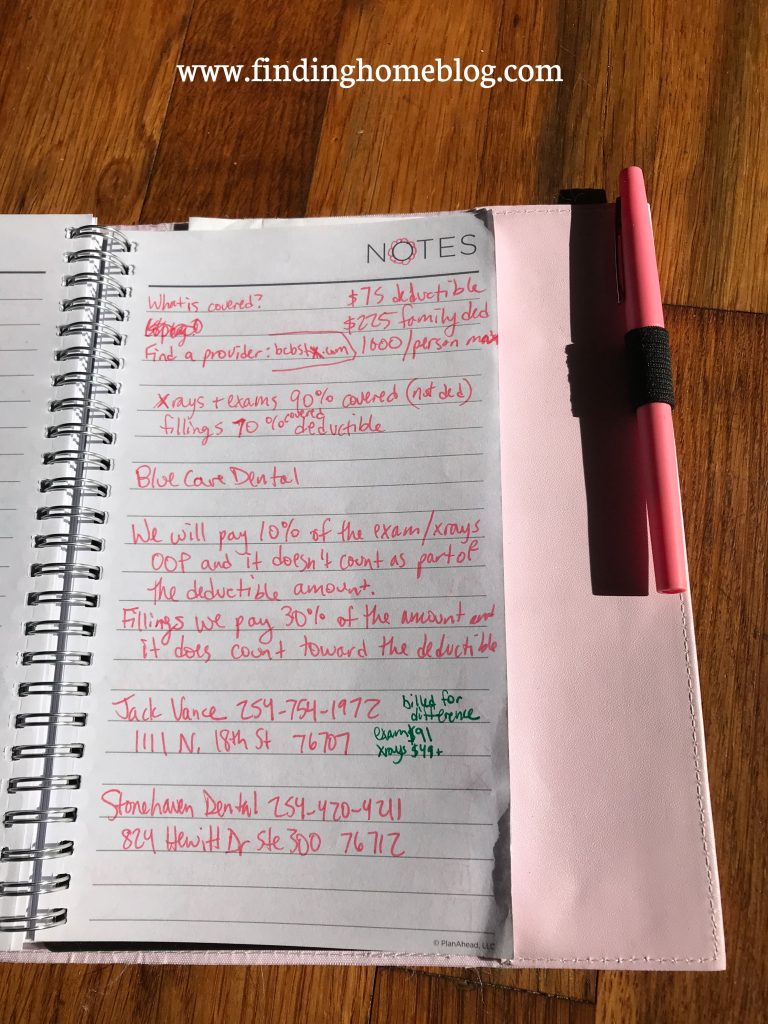 www.findinghomeblog.com
NOTES
What is covered? $75 deductible
$225 family ded
Find a provider: bcbstx.com 1000/person max
xrays + exams 90% covered (not ded)
fillings 70% covered deductible
Blue Care Dental
We will pay 10% of the exam/xrays
OOP and it doesn't count as part of
the deductible amount.
Fillings we pay 30% of the amount and
it does count toward the deductible
Jack Vance 254-754-1972 billed for
difference
1111 N. 18th St 76707 exam $91
xrays $49+
Stonehaven Dental 254-420-4211
824 Hewitt Dr Ste 300 76712
© PlanAhead, LLC